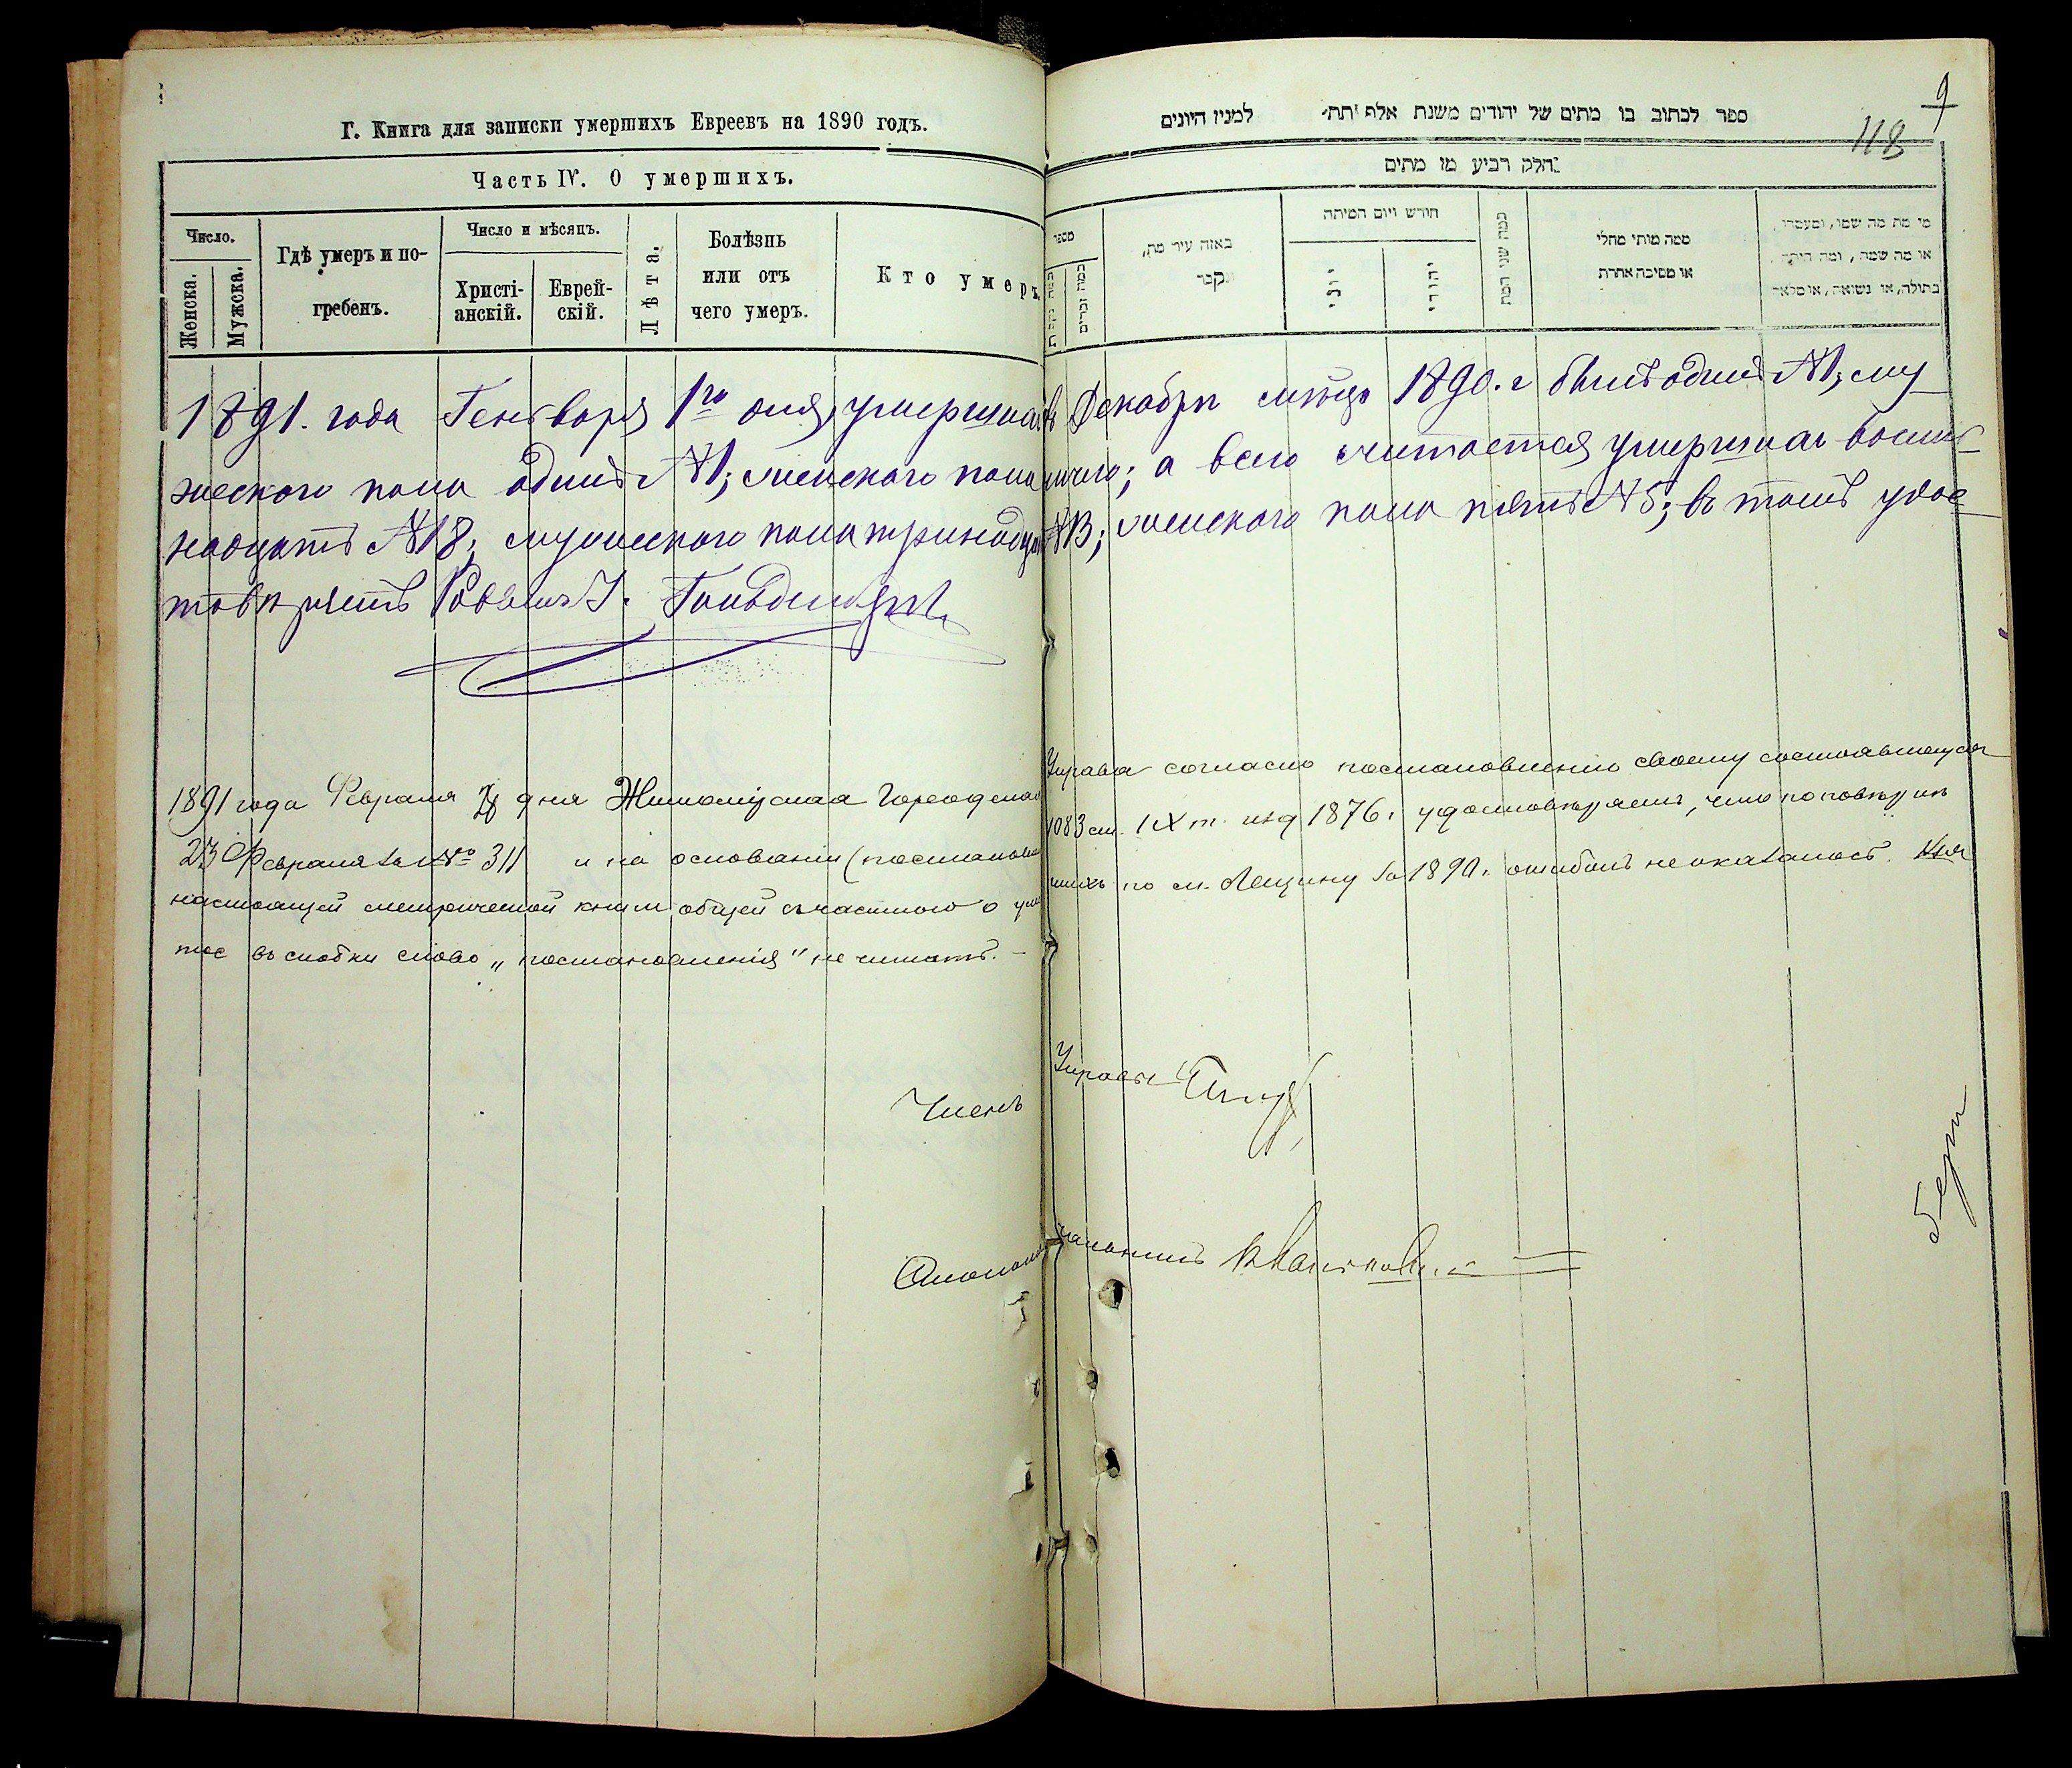 Г. Книга для записки умершихъ Евреевъ на 1890 годъ.
Часть IV. О умершихъ.
Число.
Женска.
Мужска.
Гдѣ умеръ и по-
гребенъ.
Число и мѣсяцъ.
Христі-
анскій.
Еврей-
скій.
Лѣта.
Болѣзнь
или отъ
чего умеръ.
Кто умеръ
ספר לכתוב בו מתים של יהודים משנת אלף תת למנין היונים
9
118
חלק רביע מן מתים
מספר
כמה זכרים
באזה עיר מת,
קבר
חודש ויום המיתה
יוני
יהודי
כמה שני המת
ממה מותו מחלי
או מסיבה אחרת
מי מת מה שמו, ומעמדו,
או מה שמה, ומה היתה,
בתולה, או נשואה, או
1891. года Генваря 1го дня, умершихъ въ Декабрѣ мѣсяцѣ 1890. г былъ одинъ №1; му
жескаго пола одинъ №1; женскаго пола ничего; а всего считается умершихъ восем-
надцать №18; мужескаго пола тринадцать №13; женскаго пола пять №5; въ томъ удос-
товѣряетъ Раввинъ
1891 года Февраля дня Житомірская Городская Управа согласно постановленію своему состоявшемуся
23 Февраля за №о 311 и на основаніи (постановле 1083 ст. IX т. изд 1876. удостовѣряетъ, что по повѣркѣ
настоящей метрической книги общей съ частною о умершихъ по м. Лещину за 1890. ошибокъ не оказалось. Взя
тое въ скобки слово „постановленія" не читать.-
Членъ Управы